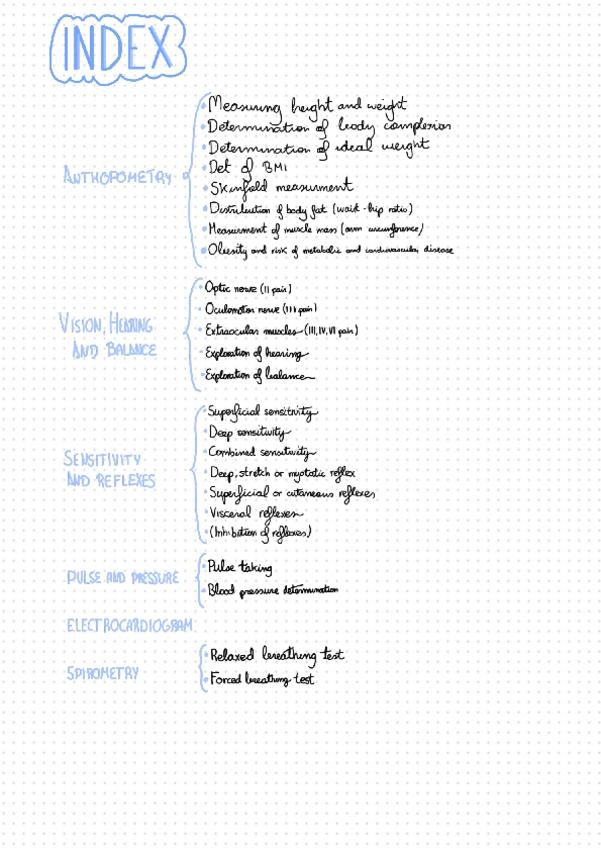 INDEX
ANTHOPOMETRY
Measuring height and weight
Determination of body complexion
Determination of ideal weight
Det of BMI
Skinfold measurment
Distribution of body fat (waist-hip ratio)
Measurment of muscle mass (arm circumference)
Obesity and risk of metabolic and cardiovascular disease
VISION, HEARING
AND BALANCE
Optic nerve (II pair)
Oculomotor nerve (III pair)
Extraocular muscles (III, IV, VI pair)
Exploration of hearing
Exploration of balance
SENSITIVITY
AND REFLEXES
Superficial sensitivity
Deep sensitivity
Combined sensitivity
Deep, stretch or myotatic reflex
Superficial or cutaneous reflexes
Visceral reflexes
(Inhibition of reflexes)
PULSE AND PRESSURE
Pulse taking
Blood pressure determination
ELECTROCARDIOGRAM
SPIROMETRY
Relaxed breathing test
Forced breathing test